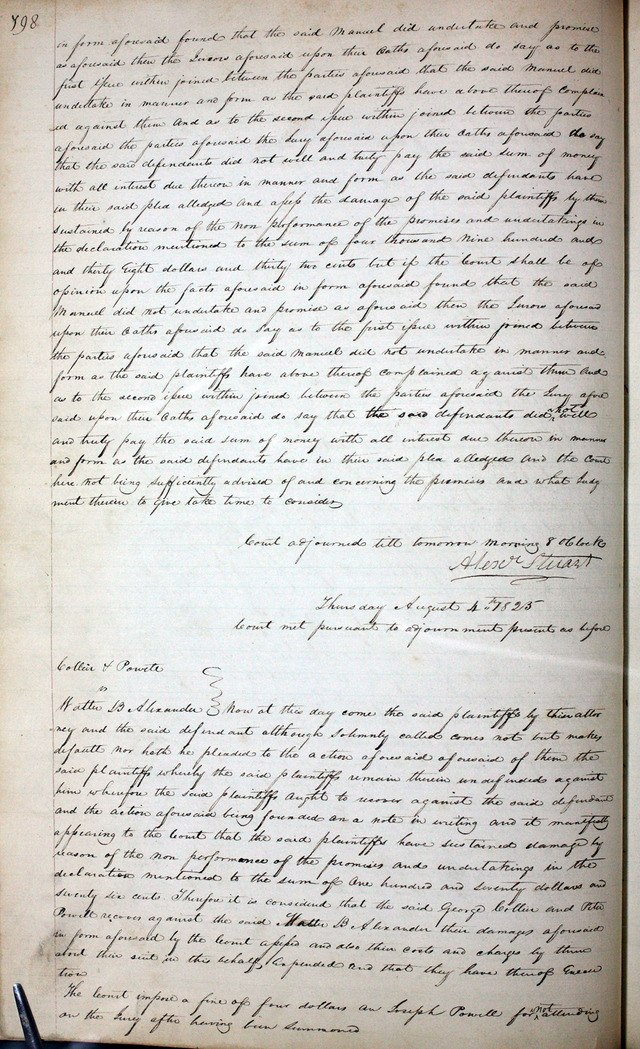 398
in form aforesaid found that the said Manuel did undertake and promise
as aforesaid then the Jurors aforesaid upon their Oaths aforesaid do say as to the
first issue within joined between the parties aforesaid that the said Manuel did
undertake in manner and form as the said plaintiffs have above thereof complain
ed against them and as to the second issue within joined between the parties
aforesaid the parties aforesaid the Jury aforesaid upon their Oaths aforesaid do say
that the said defendants did not well and truly pay the said sum of money
with all interest due thereon in manner and form as the said defendants have
in their said plea alledged and assess the damage of the said plaintiffs by them
sustained by reason of the non performance of the promises and undertakings in
the declaration mentioned to the sum of four thousand nine hundred and
and thirty Eight dollars and thirty two cents but if the Court shall be of
opinion upon the facts aforesaid in form aforesaid found that the said
Manuel did not undertake and promise as aforesaid then the Jurors aforesaid
upon their Oaths aforesaid do say as to the first issue within joined between
the parties aforesaid that the said Manuel did not undertake in manner and
form as the said plaintiffs have above thereof complained against them and
as to the second issue within joined between the parties aforesaid the Jury afore
said upon their Oaths aforesaid do say that the said defendants did not well
and truly pay the said sum of money with all interest due thereon in manner
and form as the said defendants have in their said plea alledged and the Court
here not being sufficiently advised of and concerning the premises and what Judg
ment therein to give take time to consider
Court adjourned till tomorrow morning 8 oClock
Alexr Stuart
Thursday August 4th 1825
Court met pursuant to adjournment present as before
Collier & Powell
vs
Walter B Alexander Now at this day come the said plaintiffs by their attor
ney and the said defendant although solemnly called comes not but makes
default nor hath he pleaded to the action aforesaid aforesaid of them the
said plaintiffs whereby the said plaintiffs remain therein undefended against
him wherefore the said plaintiffs aught to recover against the said defendant
and the action aforesaid being founded on a note in writing and it manifestly
appearing to the Court that the said plaintiffs have sustained damage by
reason of the non performance of the promises and undertakings in the
declaration mentioned to the sum of One hundred and seventy dollars and
seventy six cents Therefore it is considered that the said George Collier and Peter
Powell recover against the said Walter B Alexander their damages aforesaid
in form aforesaid by the Court assessed and also their costs and charges by them
about their suit in this behalf expended and that they have thereof Execu
tion
The Court impose a fine of four dollars on Joseph Powell for not attending
on the Jury after having been summoned